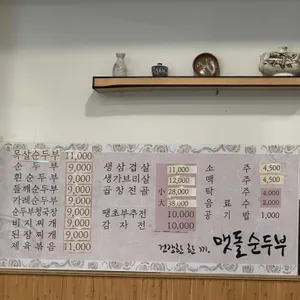 목살순두부 11,000
순두부 9,000
흰순두부 9,000
들깨순두부 9,000
카레순두부 9,000
순두부청국장 9,000
비지찌개 9,000
된장찌개 9,000
제육볶음 11,000
생삼겹살 11,000
생가브리살 12,000
곱창전골 小 28,000
大 38,000
땡초부추전 10,000
감자전 10,000
소주 4,500
맥주 4,500
탁주 4,000
음료수 2,000
공기밥 1,000
건강한 한 끼, 맷돌순두부